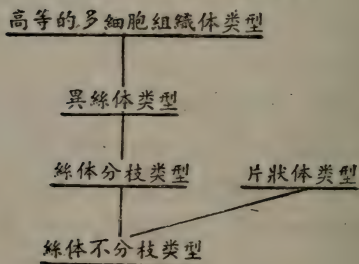 高等的多細胞組織体类型
異絲体类型
絲体分枝类型 片狀体类型
絲体不分枝类型